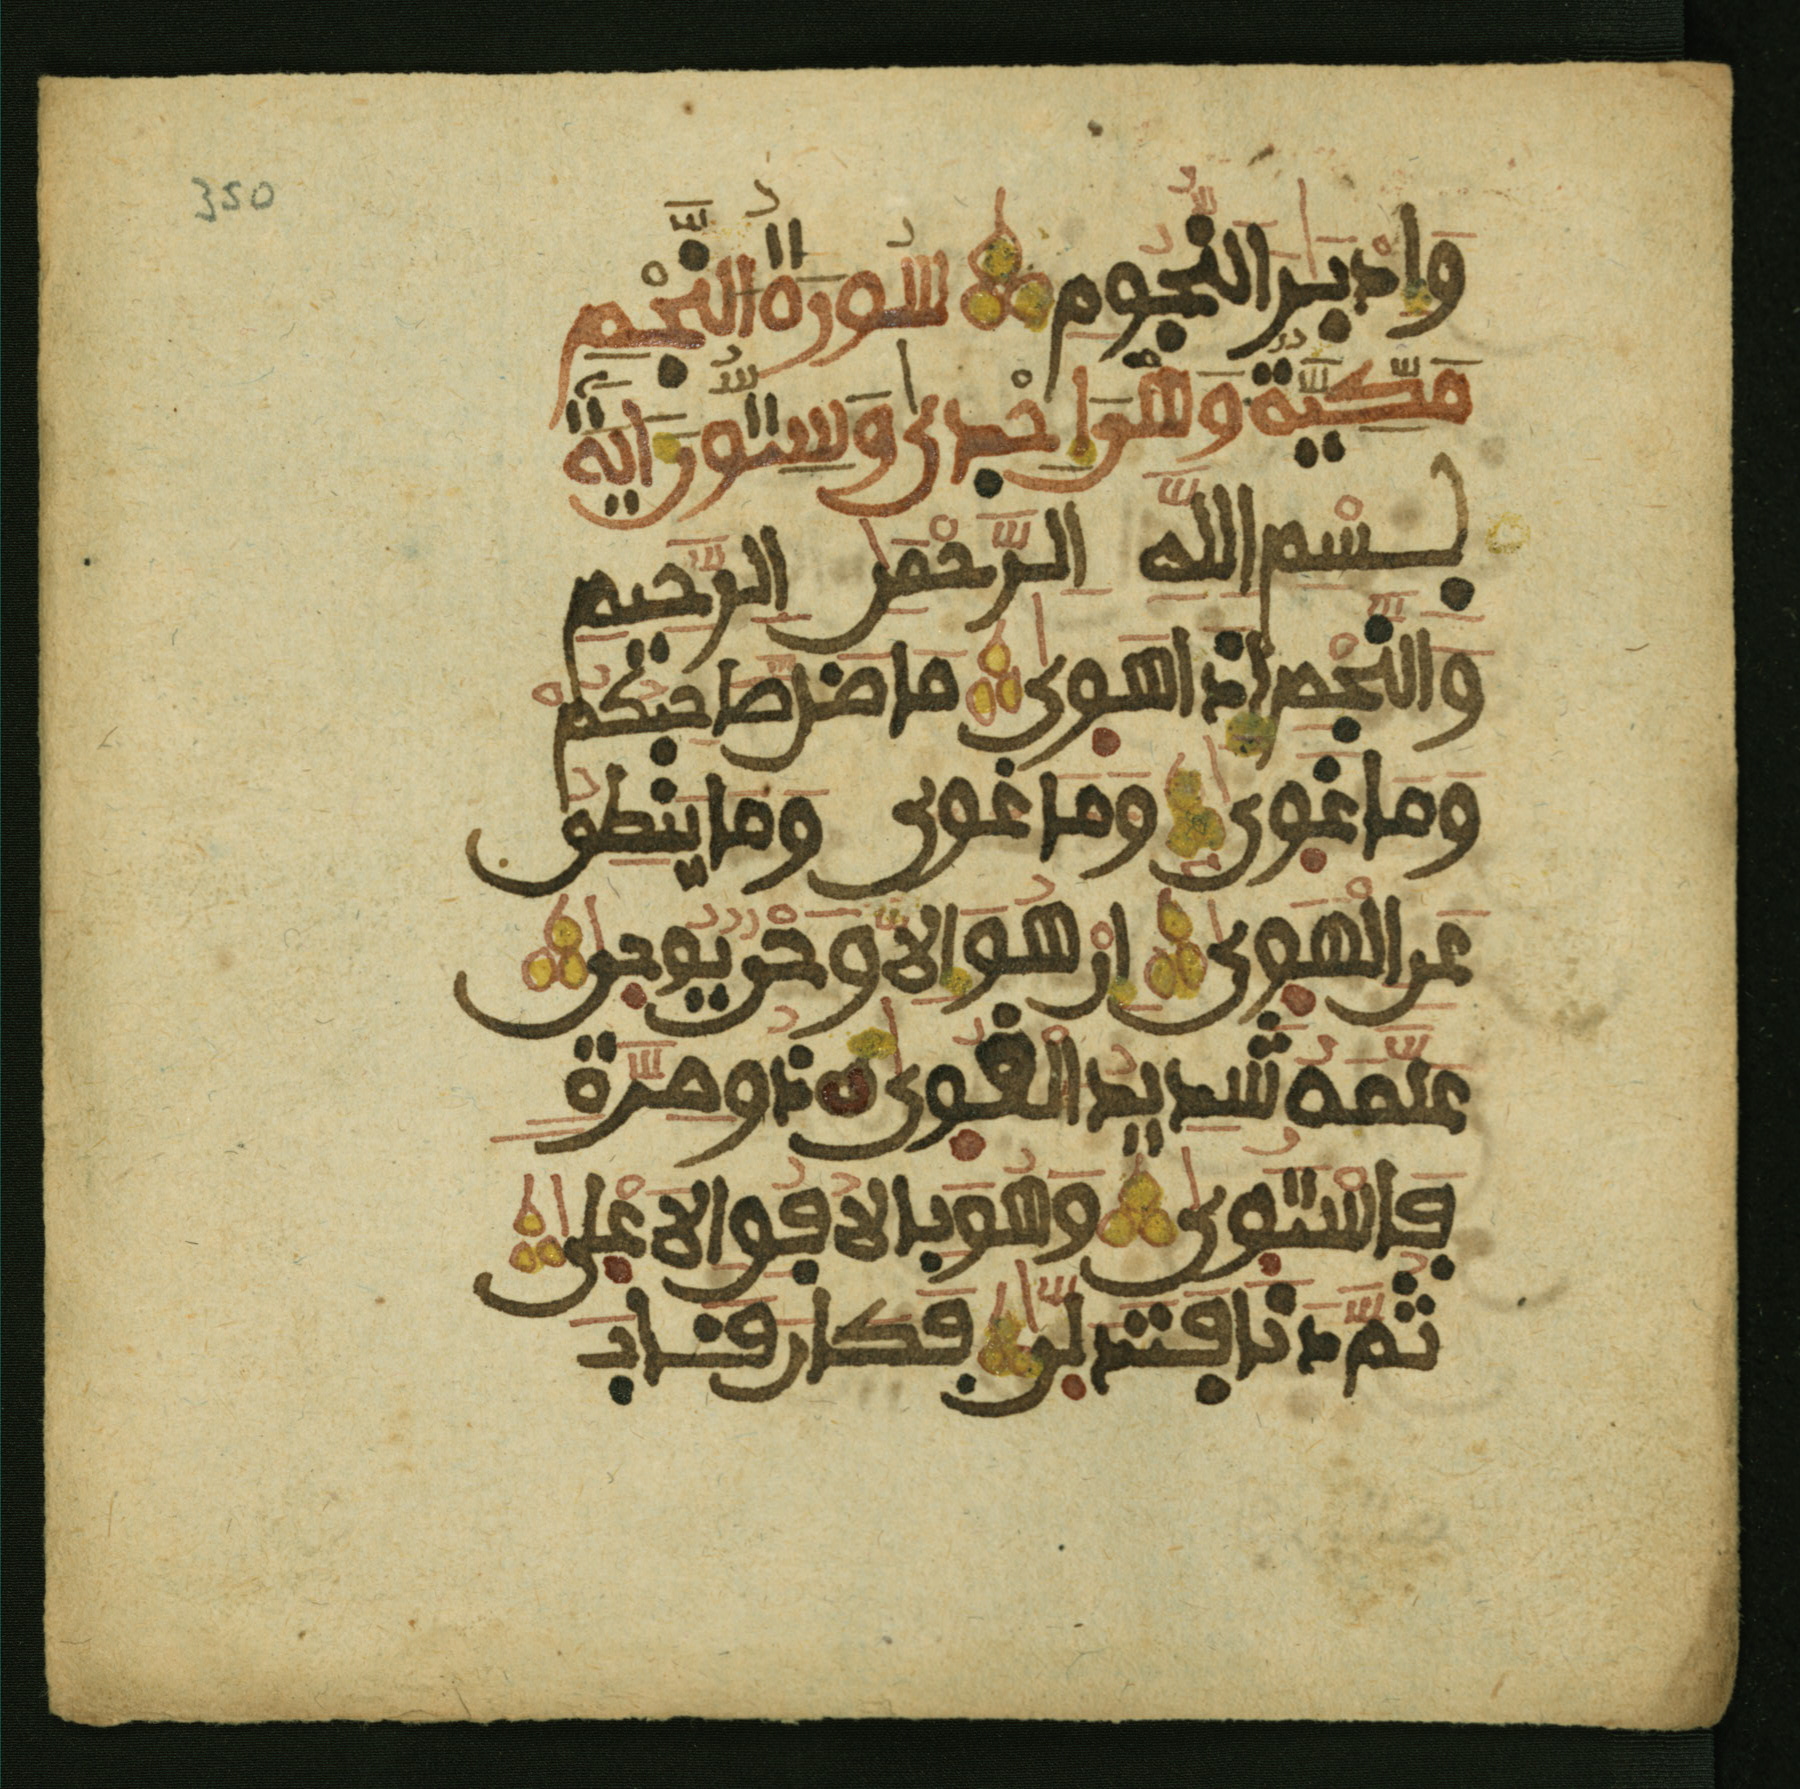 350
وَإِدْبَٰرَ ٱلنُّجُومِ سُورَةُ ٱلنَّجْمِ
مَكِّيَّةٌ وَهُوَ إِحْدَىٰ وَسِتُّونَ ءَايَةً
بِسْمِ اللَّهِ الرَّحْمَٰنِ الرَّحِيمِ
وَالنَّجْمِ إِذَا هَوَىٰ مَا ضَلَّ صَاحِبُكُمْ
وَمَا غَوَىٰ وما غوى وَمَا يَنطِقُ
عَنِ الْهَوَىٰ إِنْ هُوَ إِلَّا وَحْيٌ يُوحَىٰ
عَلَّمَهُ شَدِيدُ الْقُوَىٰ ذُو مِرَّةٍ
فَاسْتَوَىٰ وَهُوَ بِالْأُفُقِ الْأَعْلَىٰ
ثُمَّ دَنَا فَتَدَلَّىٰ فَكَانَ قَابَ